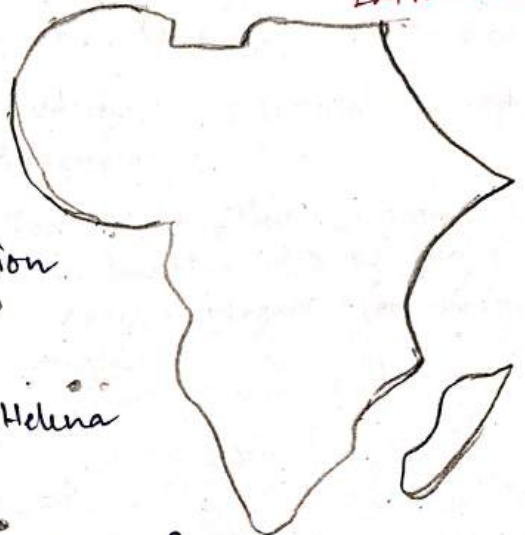 ion
Helena